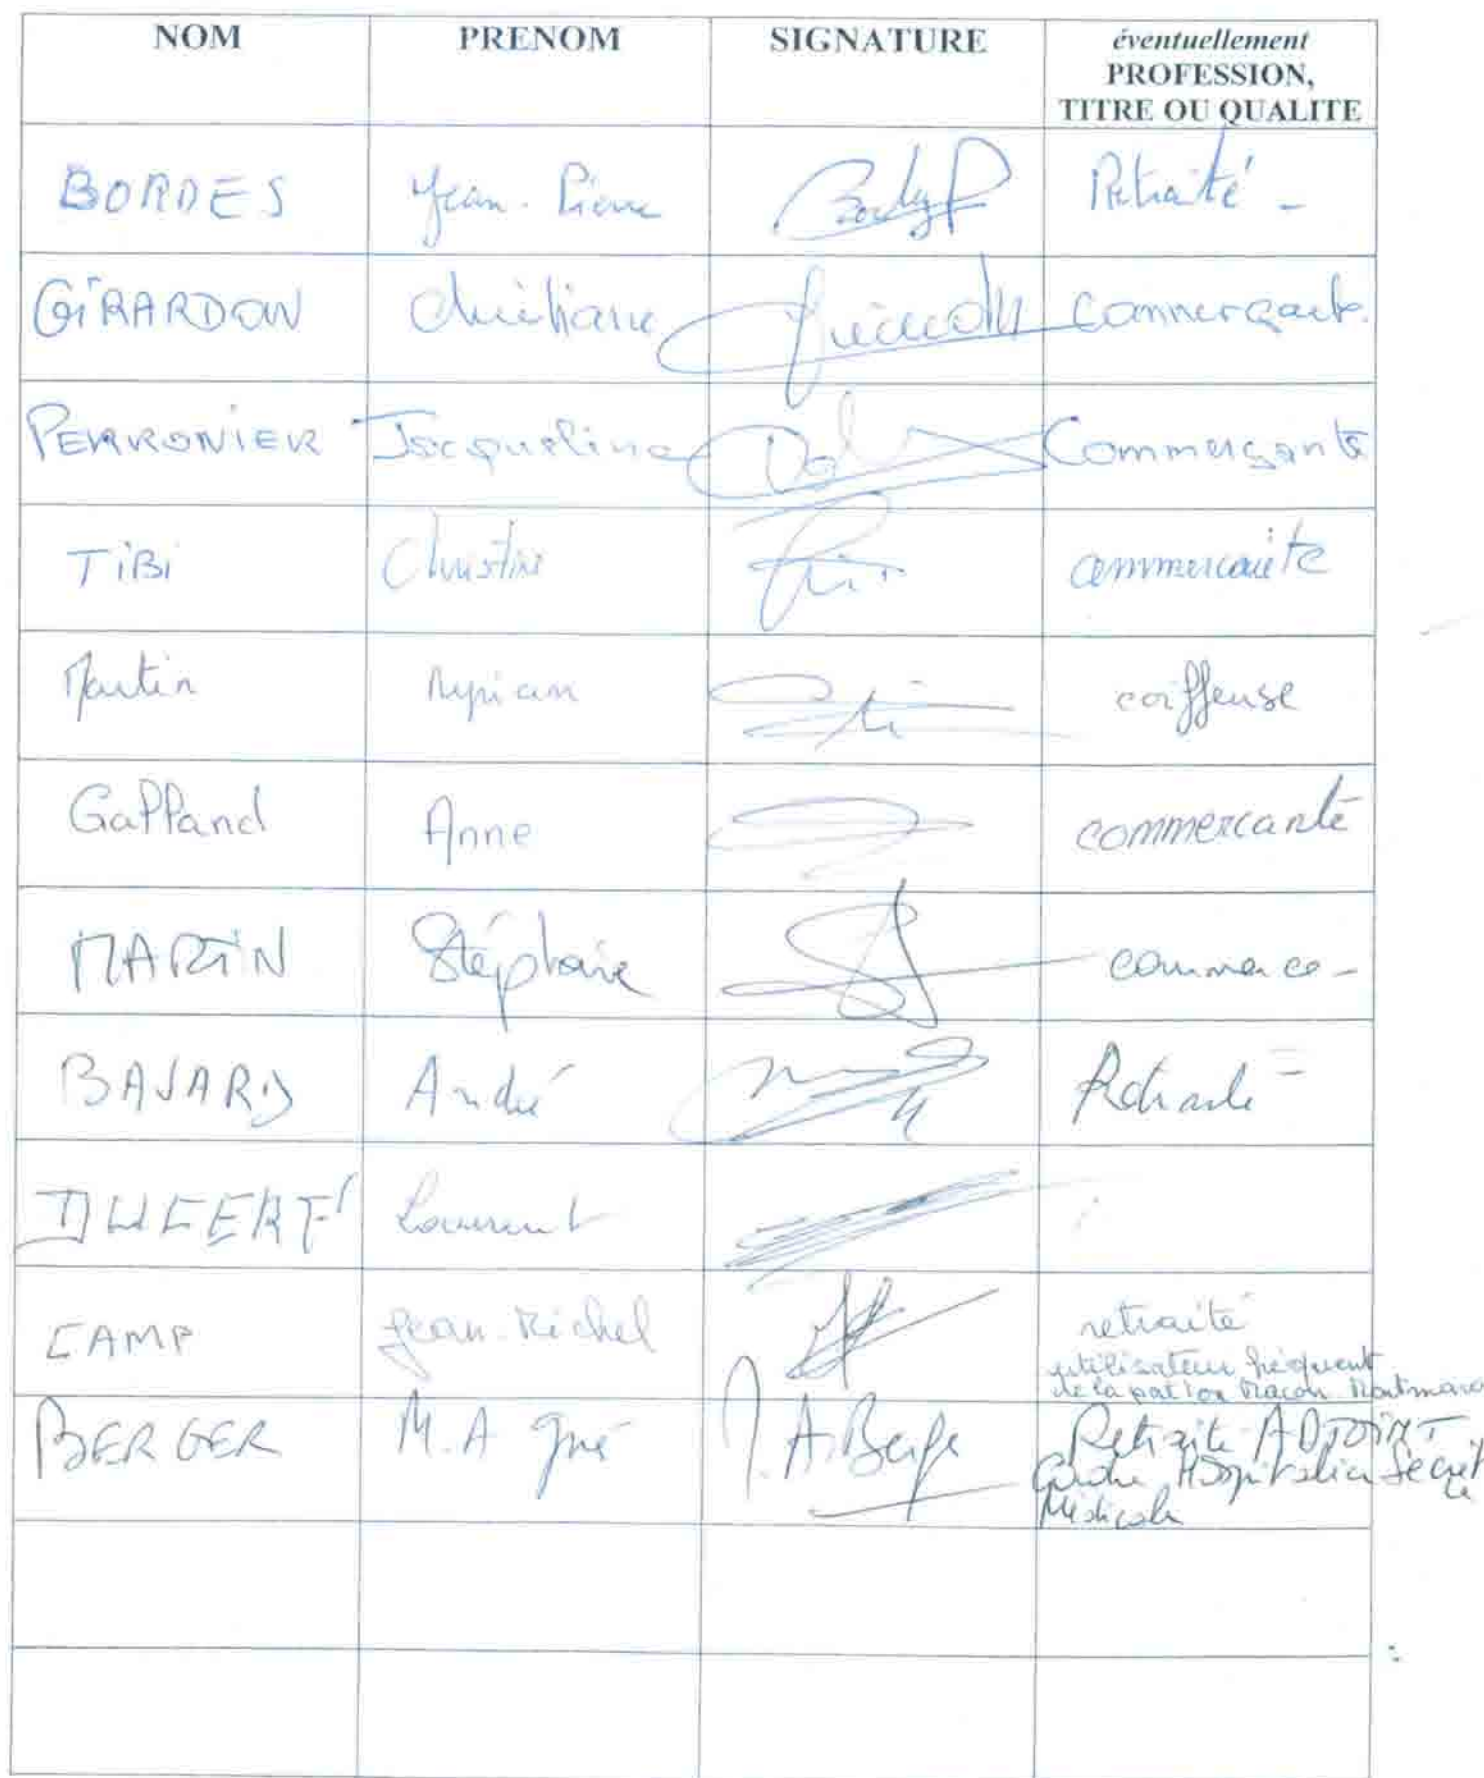 NOM PRENOM SIGNATURE éventuellement
PROFESSION,
TITRE OU QUALITE
BORDES Jean-Pierre Retraité -
GIRARDON Christiane Commerçante.
PERRONIER Jacqueline Commerçante
TiBi Christine commercante
Martin Myriam coiffeuse
Galland Anne commercante
MARTIN Stéphane commerce -
BAJARD André Retraité
Laurent
CAMP Jean-Michel retraité
utilisateur fréquent
de la portion Macon Montmaro
BERGER M.A J.A.Berger Retraite ADJOINT
Cadre Hospitalier Secret
Médicale